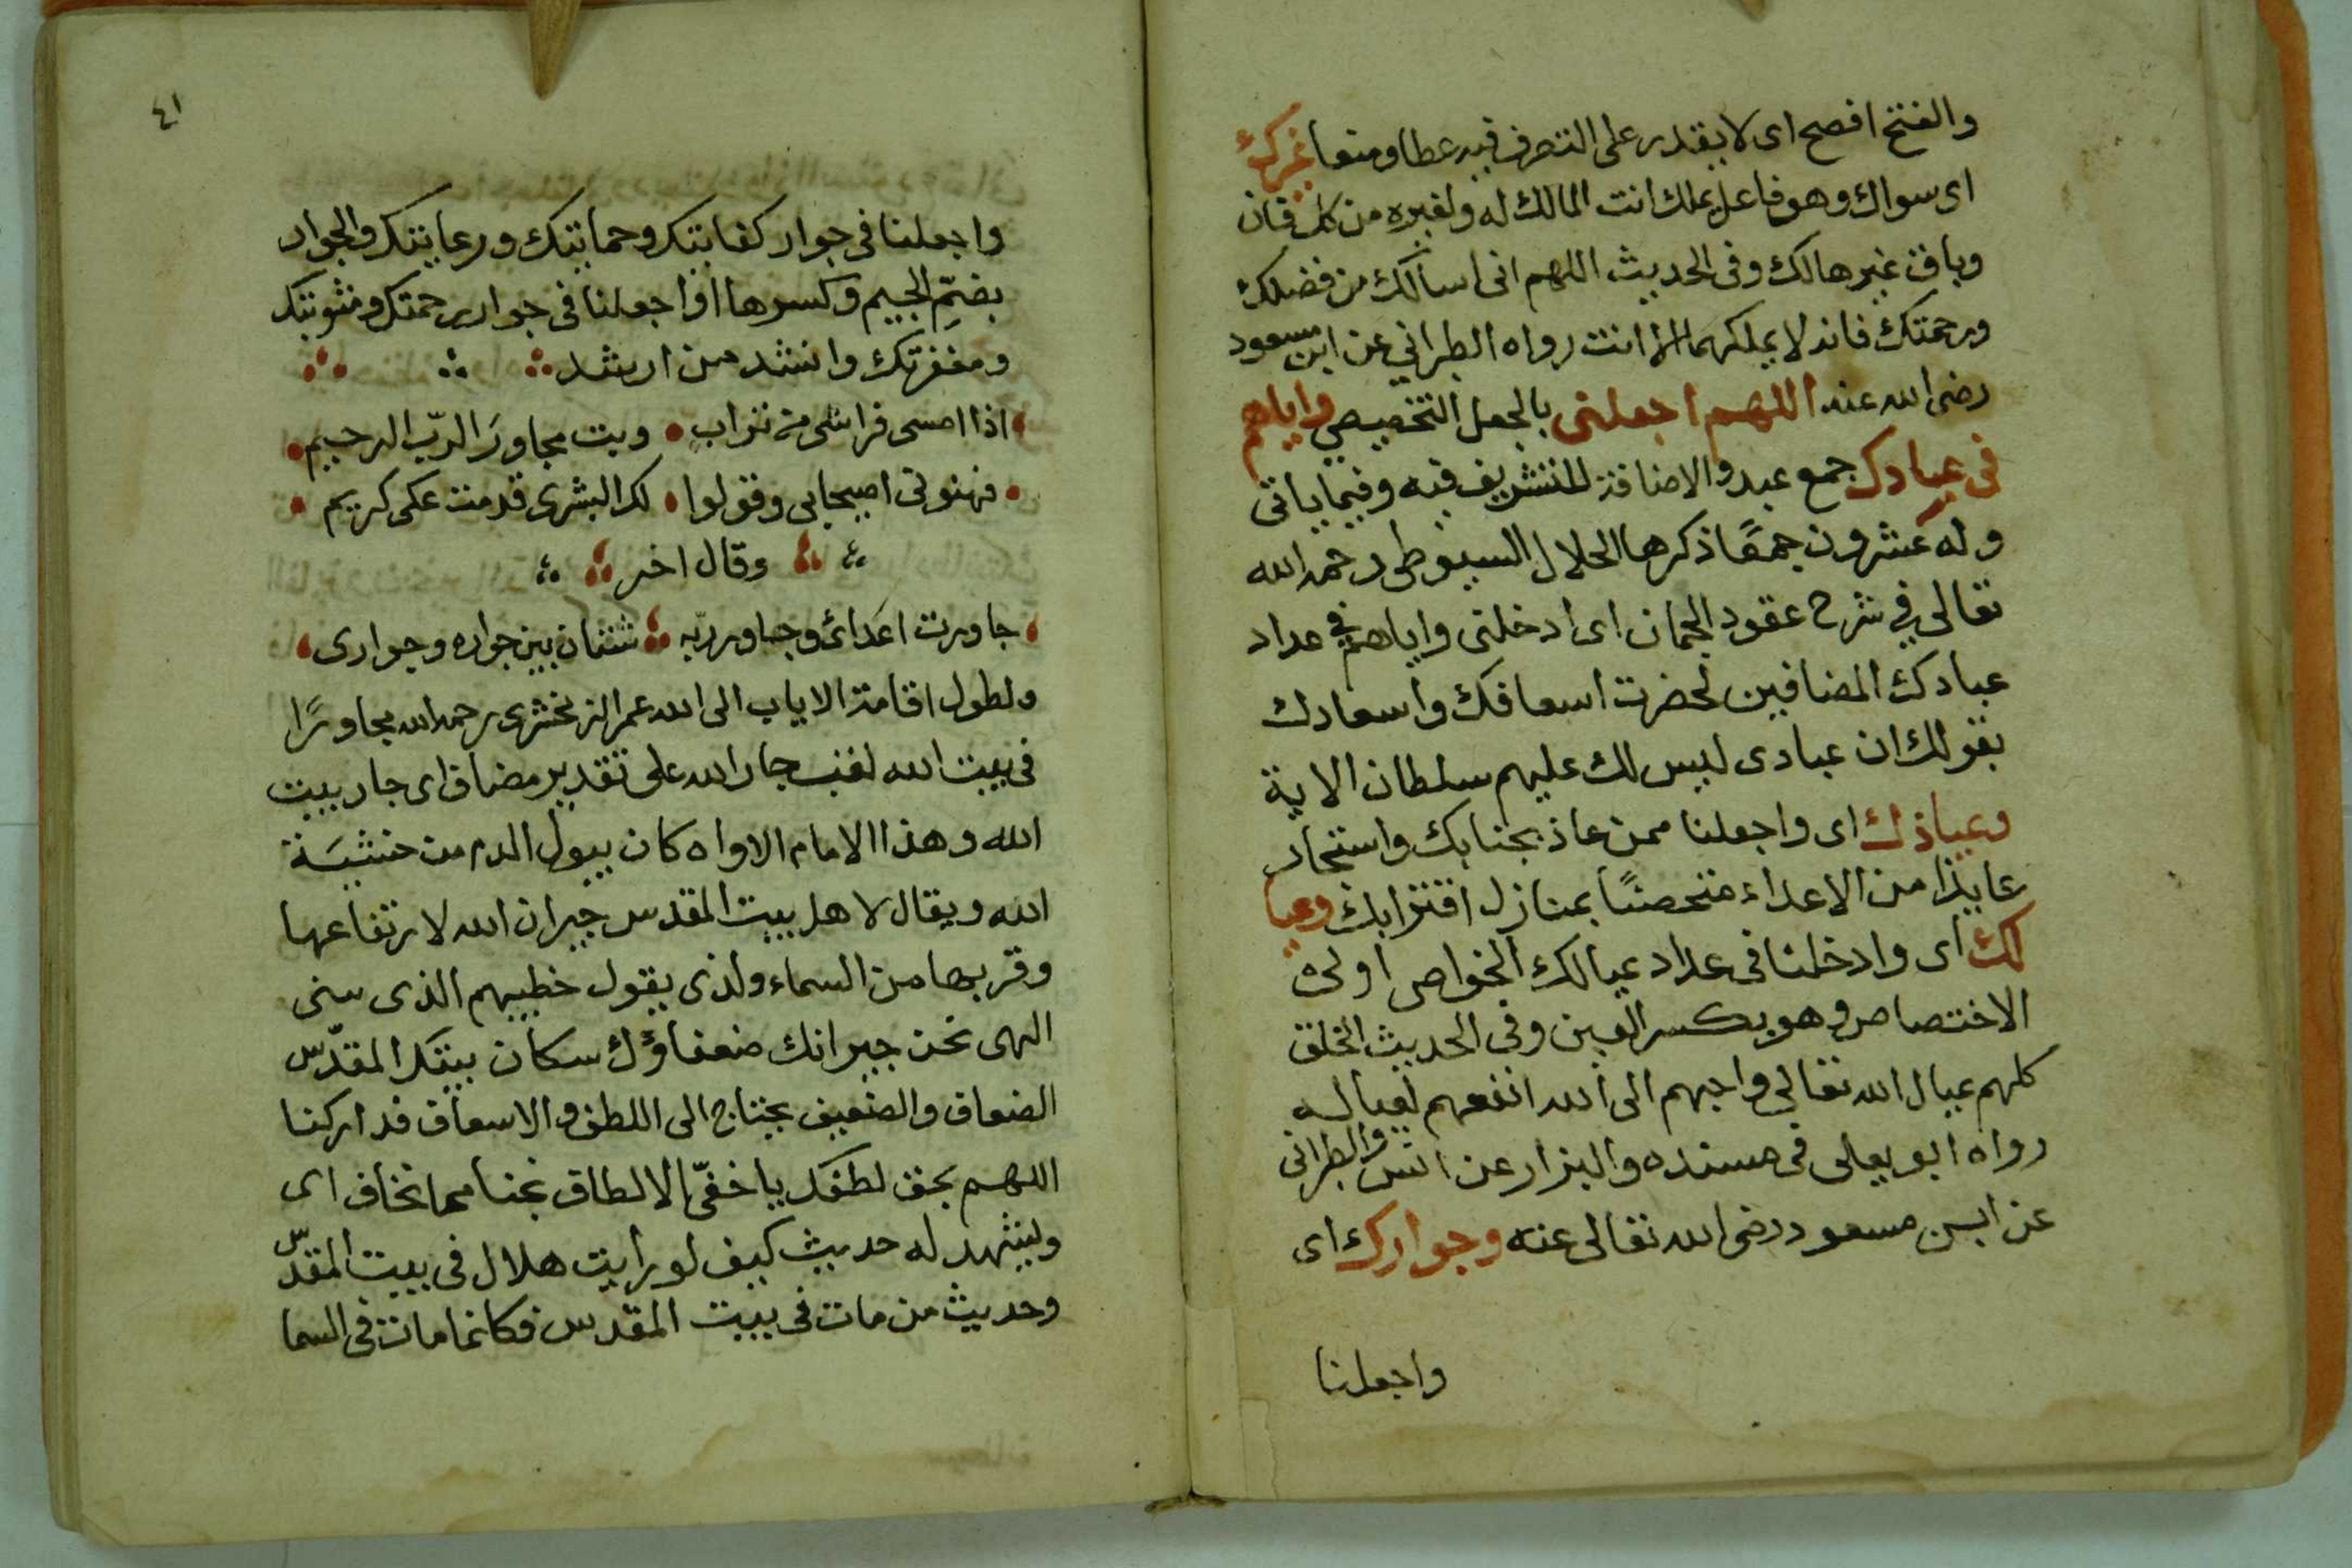 والفتح افصح اى لا يقدر على التصرف فيه عطا ومنعا غيرك
اى سواك وهو فاعل يملك انت المالك له ولغيره من كل فان
وباق غير هالك وفى الحديث اللهم انى اسالك من فضلك
ورحمتك فانه لا يملكهما الا انت رواه الطبراني عن ابن مسعود
رضى الله عنه اللهم اجعلنى بالجعل التخصيصي واياهم
فى عبادك جمع عبد والاضافة للتشريف فيه وفيما ياتى
وله عشرون جمعًا ذكرها الجلال السيوطى رحمه الله
تعالى في شرح عقود الجمان اى ادخلنى واياهم في عداد
عبادك المضافين لحضرت اسعافك واسعادك
بقولك ان عبادى ليس لك عليهم سلطان الاية
وعياذك اى واجعلنا ممن عاذ بجنابك واستجار
عايذا من الاعداء متحصنًا بمنازل اقترابك وعيا
لك اى وادخلنا فى عداد عيالك الخواص اولى
الاختصاص وهو بكسر العين وفى الحديث الخلق
كلهم عيال الله تعالى واحبهم الى الله انفعهم لعياله
رواه ابو يعلى فى مسنده والبزار عن انس والطبرانى
عن ابن مسعود رضى الله تعالى عنه وجوارك اى
واجعلنا
٤١
واجعلنا فى جوار كفايتك وحمايتك ورعايتك والجوار
بضمّ الجيم وكسرها او اجعلنا فى جوار رحمتك ومثوبتك
ومغفرتك وانشد من ارشد
اذا امسى فراشى من تراب وبت مجاورَ الربّ الرحيم
فهنونى اصيحابى وقولوا لك البشرى قدمت على كريم
وقال اخر
جاورت اعدائ وجاور ربّه شتان بين جواره وجوارى
ولطول اقامة الاياب الى الله عمر الزمخشرى رحمه الله مجاورًا
فى بيت الله لقب جار الله على تقدير مضاف اى جار بيت
الله وهذا الامام الاواه كان يبول الدم من خشيَة
الله ويقال لاهل بيت المقدس جيران الله لارتفاعها
وقربها من السماء ولذى يقول خطيبهم الذى سنى
الهى نحن جيرانك ضعفاؤك سكان بيتك المقدّس
الضعاف والضعيف يحتاج الى اللطف والاسعاف فداركنا
اللهم بحق لطفك يا خفىّ الالطاف نجنا مما نخاف اى
وليشهد له حديث كيف لو رأيت هلال فى بيت المقدّس
وحديث من مات فى بيت المقدس فكانما مات فى السما